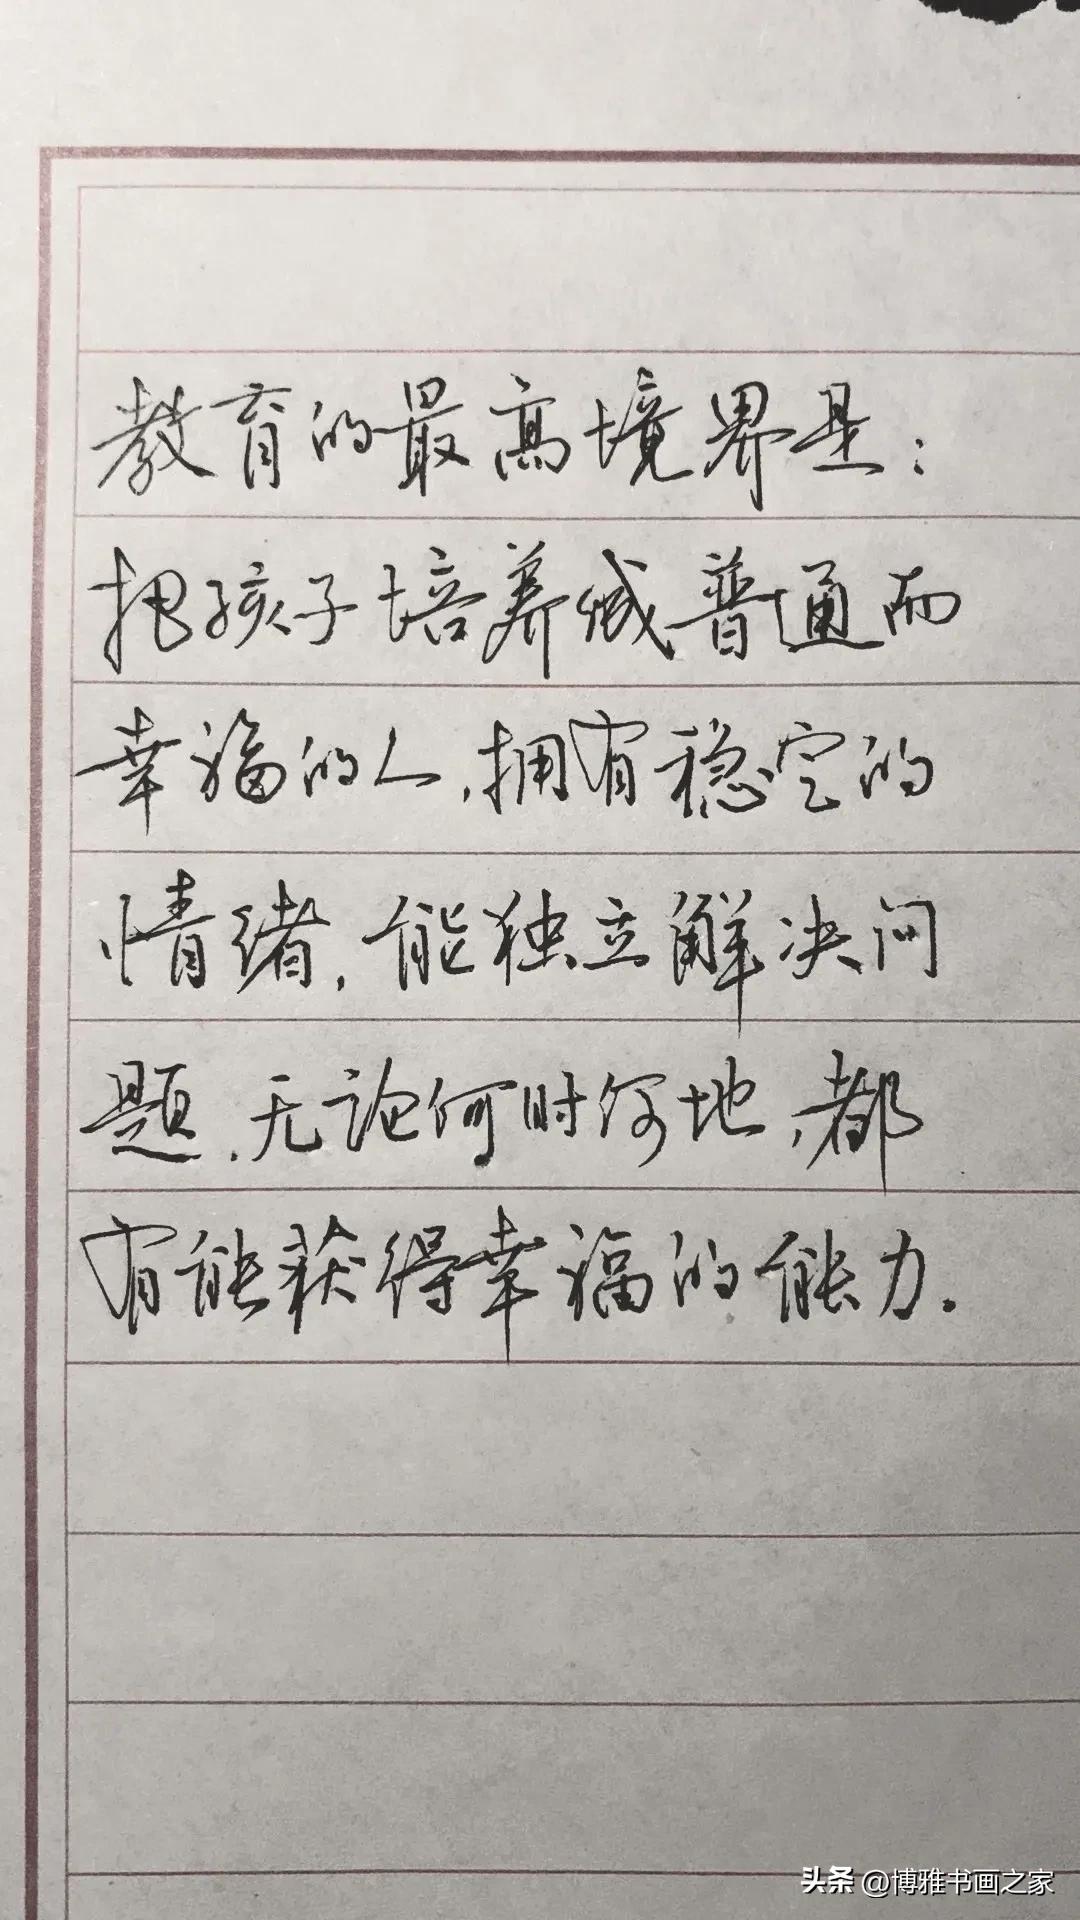 教育的最高境界是：
把孩子培养成普通而
幸福的人，拥有稳定的
情绪，能独立解决问
题，无论何时何地，都
有能获得幸福的能力。
头条 @博雅书画之家